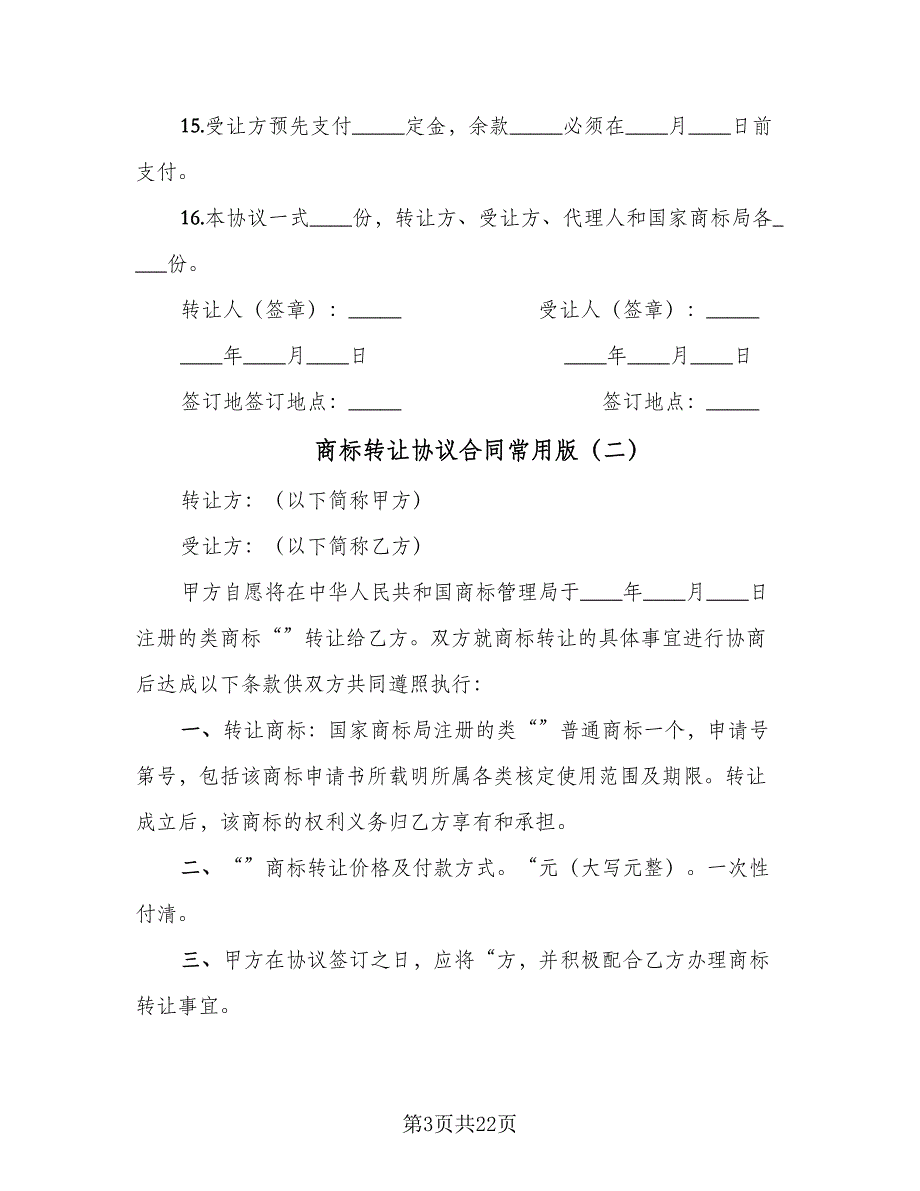 15.受让方预先支付_____定金，余款_____必须在____月____日前
支付。
16.本协议一式____份，转让方、受让方、代理人和国家商标局各_
___份。
转让人（签章）：_____ 受让人（签章）：_____
____年____月____日 ____年____月____日
签订地签订地点：_____ 签订地点：_____
商标转让协议合同常用版（二）
转让方：（以下简称甲方）
受让方：（以下简称乙方）
甲方自愿将在中华人民共和国商标管理局于____年____月____日
注册的类商标“”转让给乙方。双方就商标转让的具体事宜进行协商
后达成以下条款供双方共同遵照执行：
一、转让商标：国家商标局注册的类“”普通商标一个，申请号
第号，包括该商标申请书所载明所属各类核定使用范围及期限。转让
成立后，该商标的权利义务归乙方享有和承担。
二、“”商标转让价格及付款方式。“元（大写元整）。一次性
付清。
三、甲方在协议签订之日，应将“方，并积极配合乙方办理商标
转让事宜。
第3页共22页